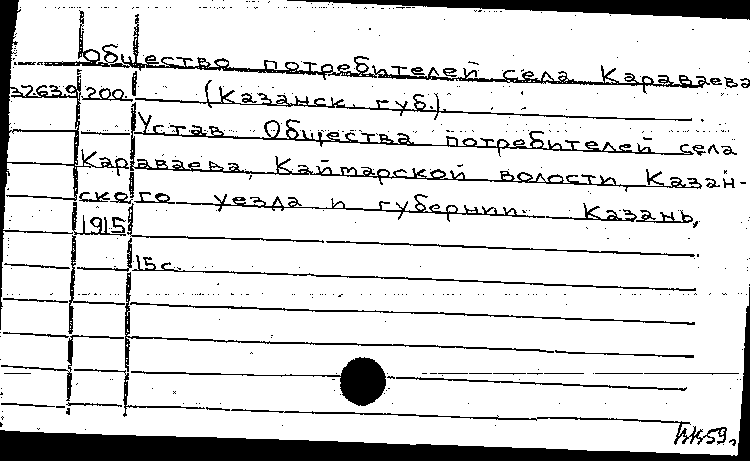 Общество потребителей села Караваева
32639 200 (Казанск. губ.).
Устав Общества потребителей села
Караваева, Каймарской волости, Казан-
ского уезда и губернии. Казань,
1915
15 с.